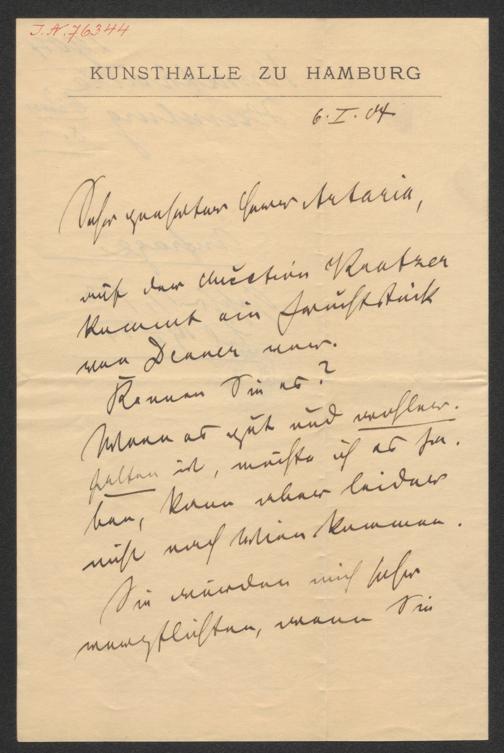 J. N. 76344
KUNSTHALLE ZU HAMBURG
6. I. 04
Sehr geehrter Herr Artaria,
auf der Auction Kratzer
kommt ein Fruchtstück
von Denner vor.
Kennen Sie es?
Wenn es gut und wohler-
halten ist, möchte ich es ha-
ben, kann aber leider
nicht nach Wien kommen.
Sie würden mich sehr
verpflichten, wenn Sie